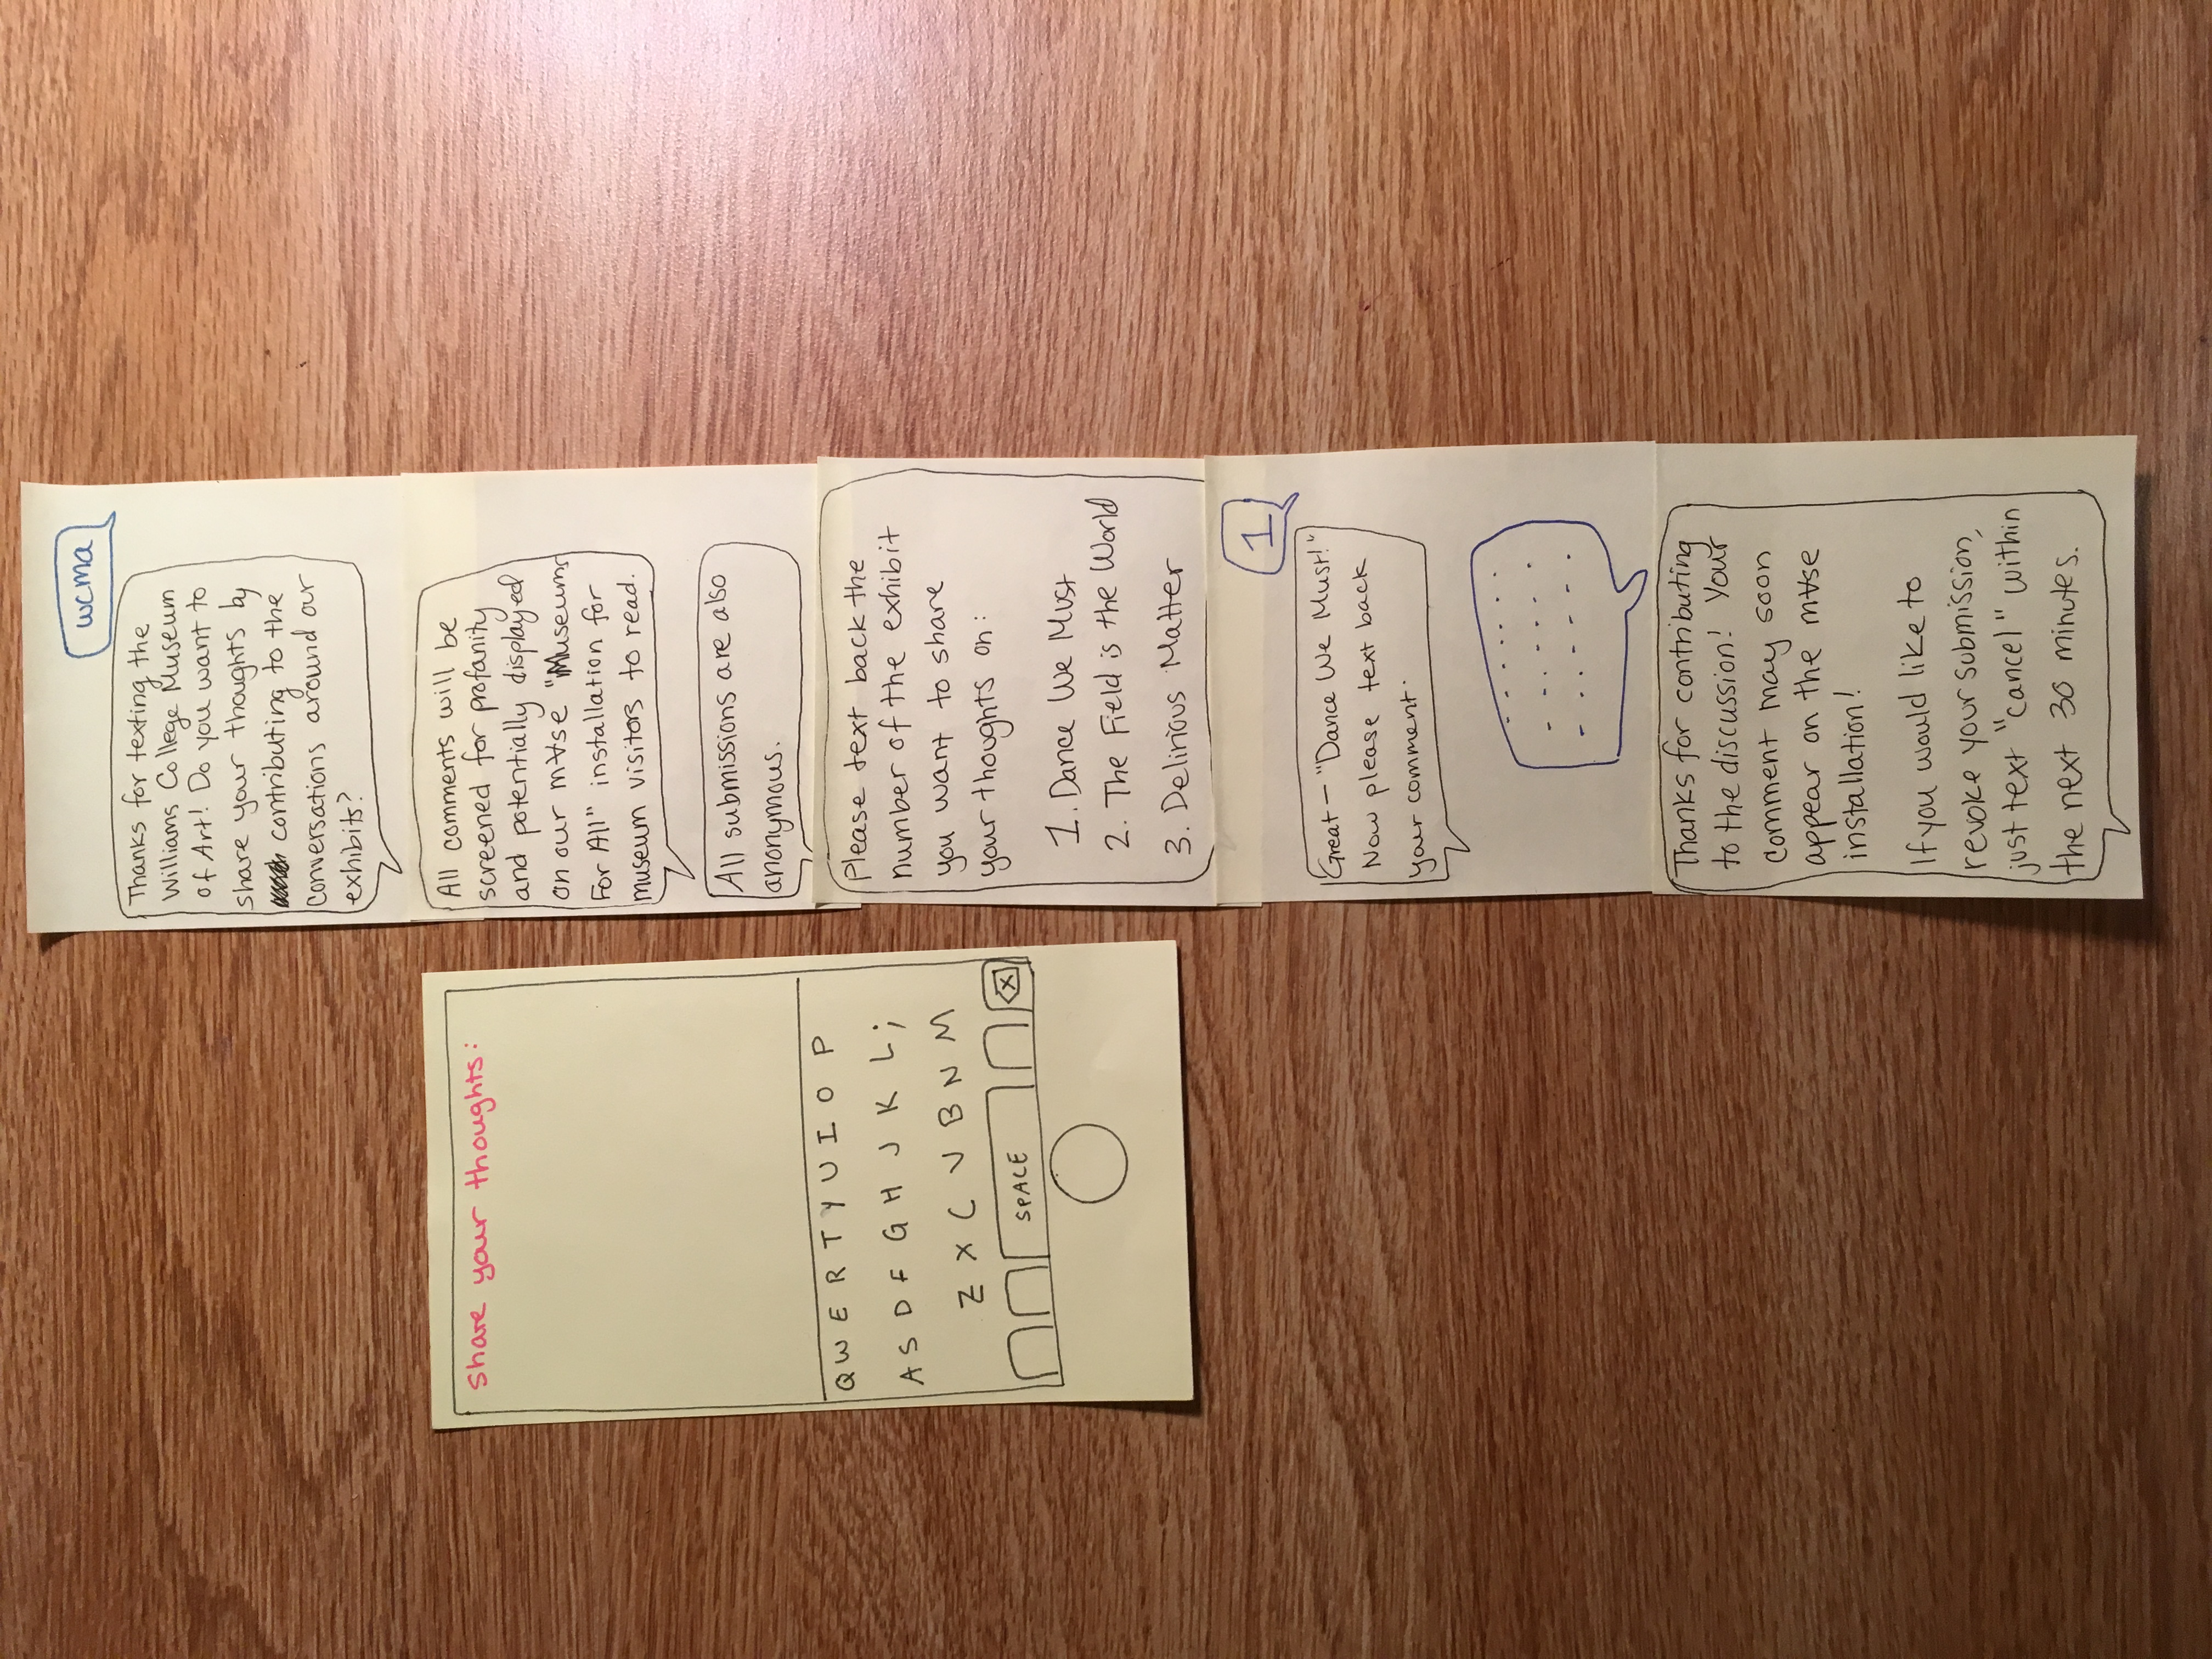 Share your thoughts:
Q W E R T Y U I O P
A S D F G H J K L ;
Z X C V B N M
SPACE
X
wcma
Thanks for texting the
Williams College Museum
of Art! Do you want to
share your thoughts by
contributing to the
conversations around our
exhibits?
All comments will be
screened for profanity
and potentially displayed
on our m∀se "Museums
For All" installation for
museum visitors to read.
All submissions are also
anonymous.
Please text back the
number of the exhibit
you want to share
your thoughts on:
1. Dance We Must
2. The Field is the World
3. Delirious Matter
1
Great - "Dance We Must!"
Now please text back
your comment.
Thanks for contributing
to the discussion! Your
comment may soon
appear on the m∀se
installation!
If you would like to
revoke your submission,
just text "cancel" within
the next 30 minutes.